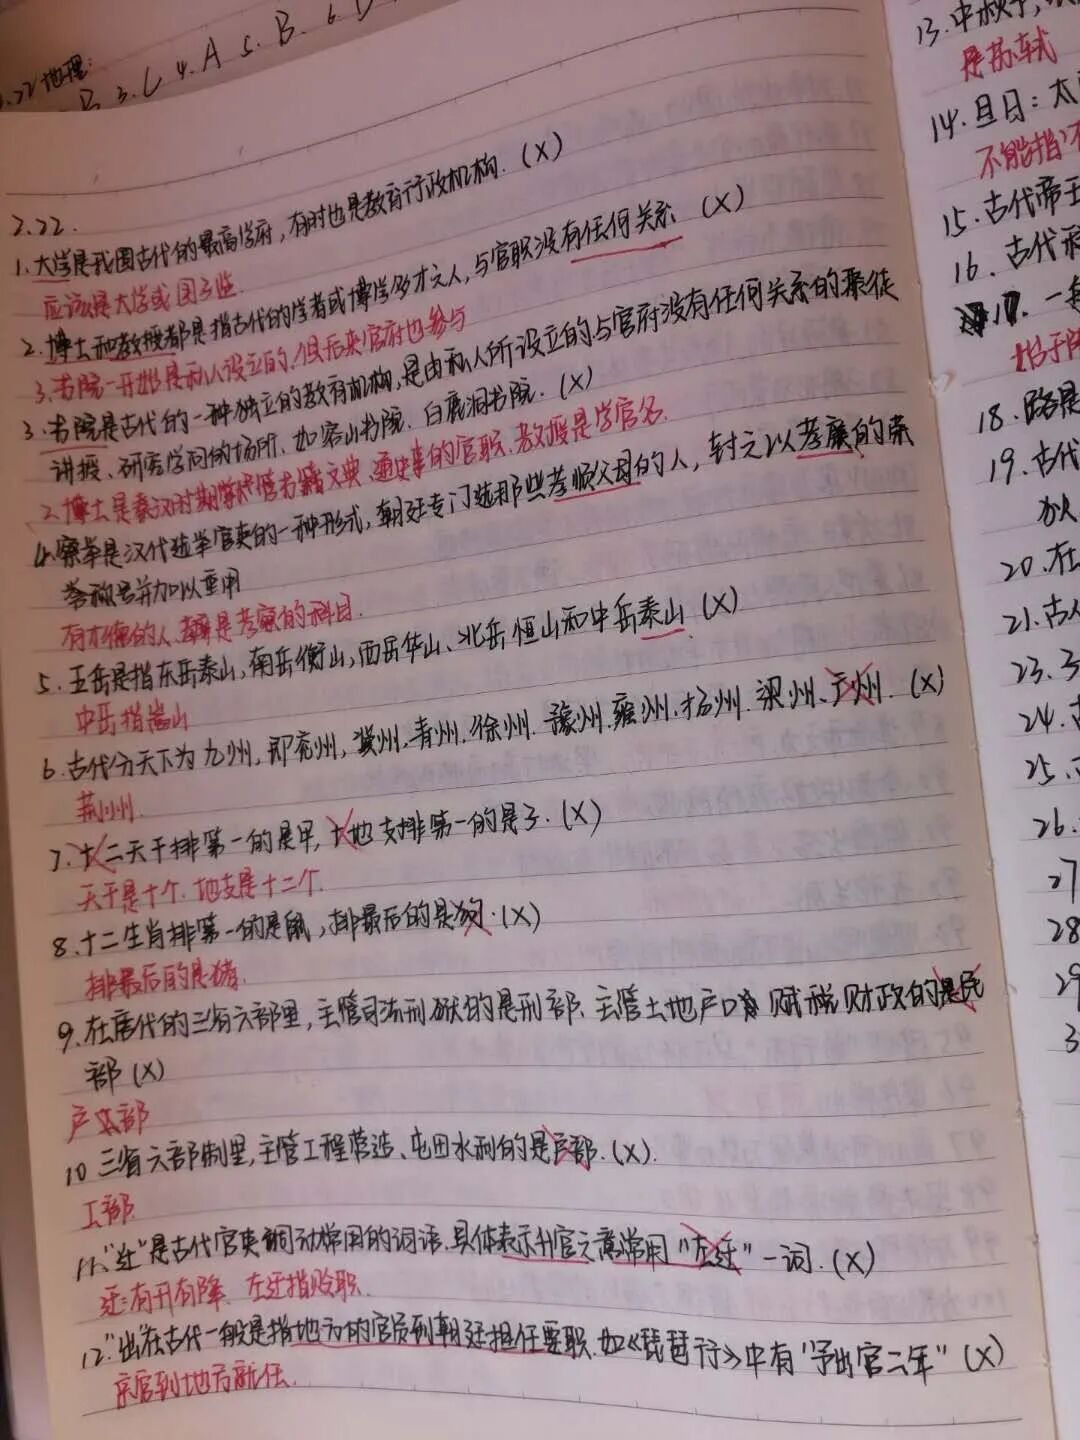 2.22地理:
B 3.C 4.A 5.B.6.D
2.22.
1.大学是我国古代的最高学府,有时也是教育行政机构.(X)
应该是太学或国子监.
2.博士和教授都是指古代的学者或博学多才之人,与官职没有任何关系 (X)
3.书院一开始是私人设立的,但后来官府也参与
3.书院是古代的一种独立的教育机构,是由私人所设立的与官府没有任何关系的聚徒
讲授、研究学问的场所.如 山书院.白鹿洞书院.(X)
2.博士是秦汉时期掌管书籍文典、通史事的官职.教授是学官名.
4.察举是汉代选举官吏的一种形式,朝廷专门选那些孝顺父母的人,封之以孝廉的荣
誉称号并加以重用
有才德的人, 是考察的科目.
5.五岳是指东岳泰山,南岳衡山,西岳华山、北岳恒山和中岳泰山(X)
中岳指嵩山
6.古代分天下为九州,即兖州,冀州,青州.徐州.豫州.雍州.扬州.梁州、广州.(X)
荆州
7.十二天干排第一的是甲,十地支排第一的是子.(X)
天干是十个.地支是十二个.
8.十二生肖排第一的是鼠,排最后的是狗.(X)
排最后的是猪.
9.在唐代的三省六部里,主管司法刑狱的是刑部.主管土地户口 赋税财政的是民
部(X)
户部
10三省六部制里,主管工程营造、屯田水利的是户部.(X).
工部.
11."迁"是古代官吏调动常用的词语.具体表示升官之意常用"左迁"一词.(X)
迁:有升有降.左迁指贬职.
12."出"在古代一般是指地方的官员到朝廷担任要职.如《琵琶行》中有"予出官二年"(X)
京官到地方就任.
13.中秋
是苏轼
14.旦日:太
不能指
15.古代帝王
16.古代
17.一
18.路是
19.古代
20.在
21.古人
23.
24.
25.
26.
27
28
29
3